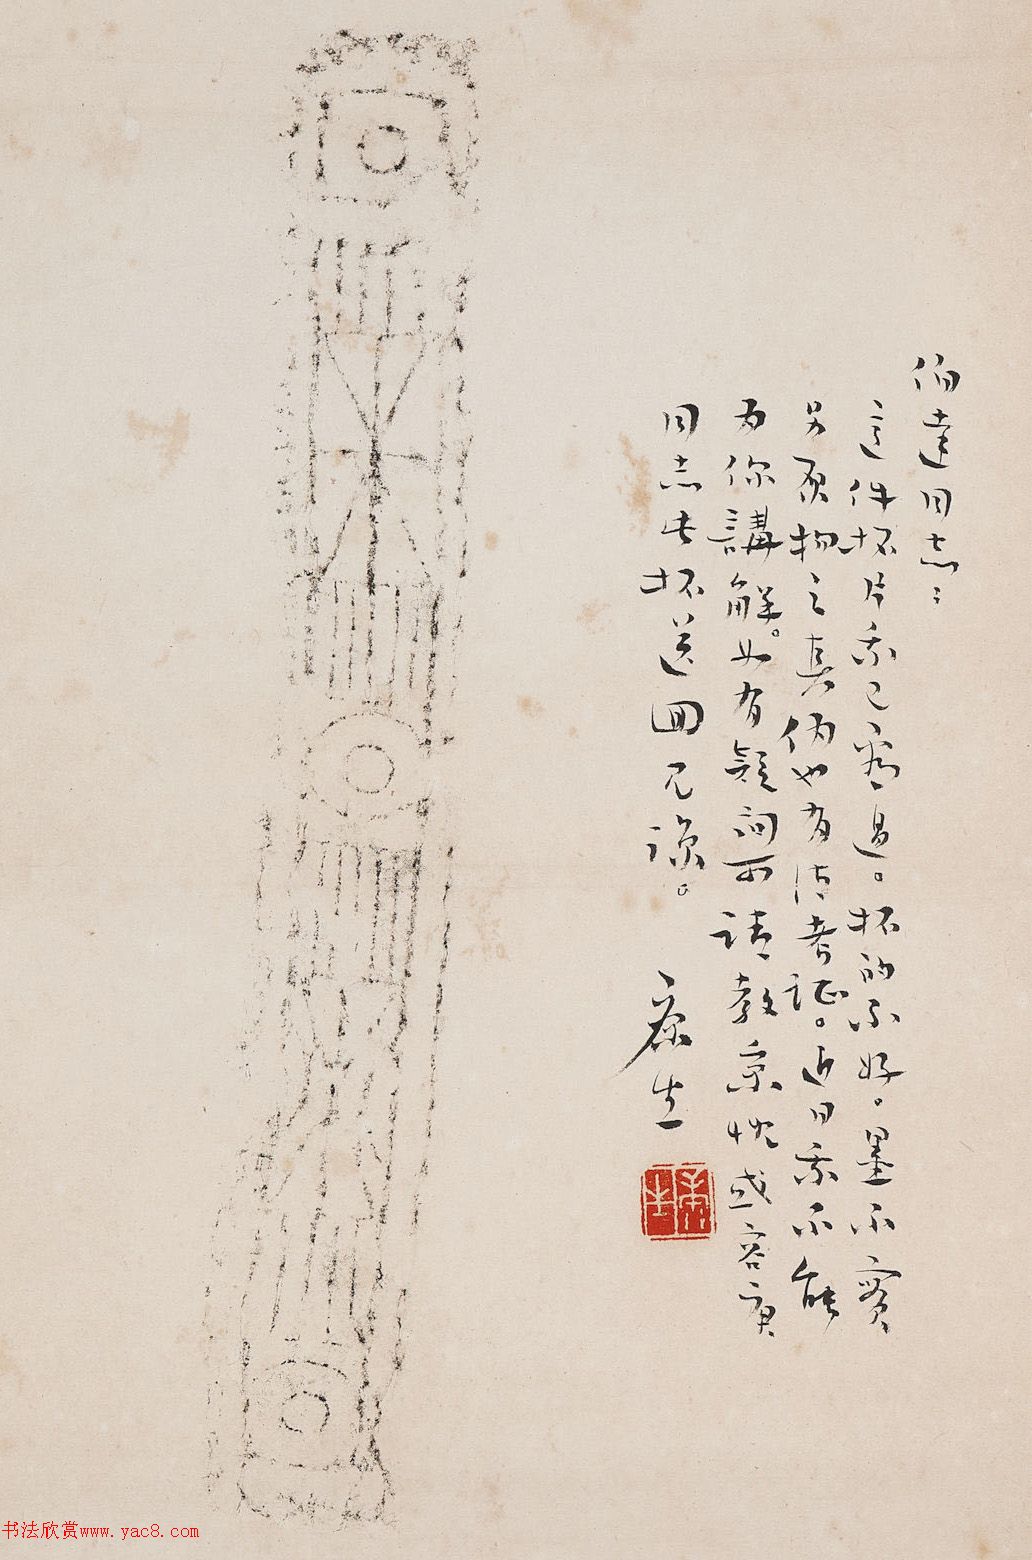 伯達同志：
這件拓片我已看過。拓的不好。墨不實
另原物之真偽也有待考証。近日我不能
为你講解。如有疑问可請教忱或容庚
同志此拓送回见諒。
康生
康生
书法欣赏www.yac8.com